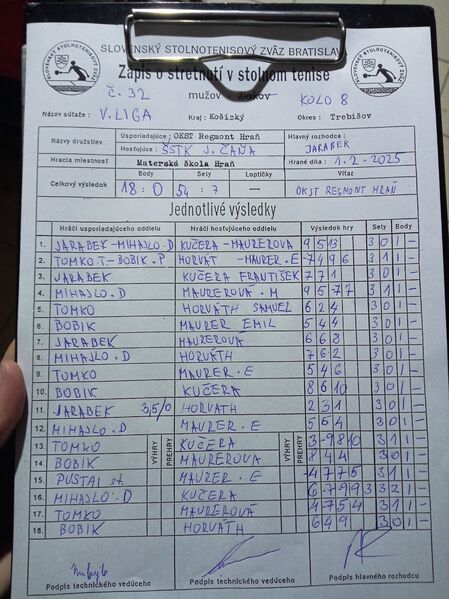 SLOVENSKÝ STOLNOTENISOVÝ ZVÄZ BRATISLAVA
Zápis o stretnutí v stolnom tenise
Č. 32 mužov žiakov KOLO 8
Názov súťaže: V. LIGA Kraj: Košický Okres: Trebišov
Názvy družstiev Usporiadajúce: OKST Regmont Hraň Hlavný rozhodca: JARABEK
Hosťujúce: ŠSTK J. ČAŇA
Hracia miestnosť Materská škola Hraň Hrané dňa: 1.2-2025
Celkový výsledok Body Sety Loptičky Víťaz
18:0 54:7 — OKST REGMONT HRAŇ
Jednotlivé výsledky
Hráči usporiadajúceho oddielu Hráči hosťujúceho oddielu Výsledok hry Sety Body
1. JARABEK-MIHAJLO.D KUČERA-MAUREROVA 9 5 13 3 0 1 -
2. TOMKO T.-BOBIK.P HORVAT-MAURER.E -7 4 9 6 3 1 1 -
3. JARABEK KUČERA FRANTIŠEK 7 7 1 3 0 1 -
4. MIHAJLO.D MAUREROVÁ.M 9 5 -7 7 3 1 1 -
5. TOMKO HORVÁTH SAMUEL 6 2 4 3 0 1 -
6. BOBIK MAURER EMIL 5 4 4 3 0 1 -
7. JARABEK MAUREROVA 6 6 8 3 0 1 -
8. MIHAJLO.D HORVÁTH 7 6 2 3 0 1 -
9. TOMKO MAURER.E 5 4 6 3 0 1 -
10. BOBIK KUČERA 8 6 10 3 0 1 -
11. JARABEK 3,5/0 HORVATH 2 3 1 3 0 1 -
12. MIHAJLO.D MAURER.E 5 6 4 3 0 1 -
13. TOMKO VÝHRY PREHRY KUČERA VÝHRY PREHRY 3 -9 8 10 3 1 1 -
14. BOBIK MAUREROVA 8 4 4 3 0 1 -
15. PUSTAI st. MAURER.E -4 7 7 5 3 1 1 -
16. MIHAJLO.D KUČERA 6 -7 9 -9 3 3 2 1 -
17. TOMKO MAUREROVÁ 4 -7 5 4 3 1 1 -
18. BOBIK HORVÁTH 6 4 9 3 0 1 -
Podpis technického vedúceho Podpis technického vedúceho Podpis hlavného rozhodcu